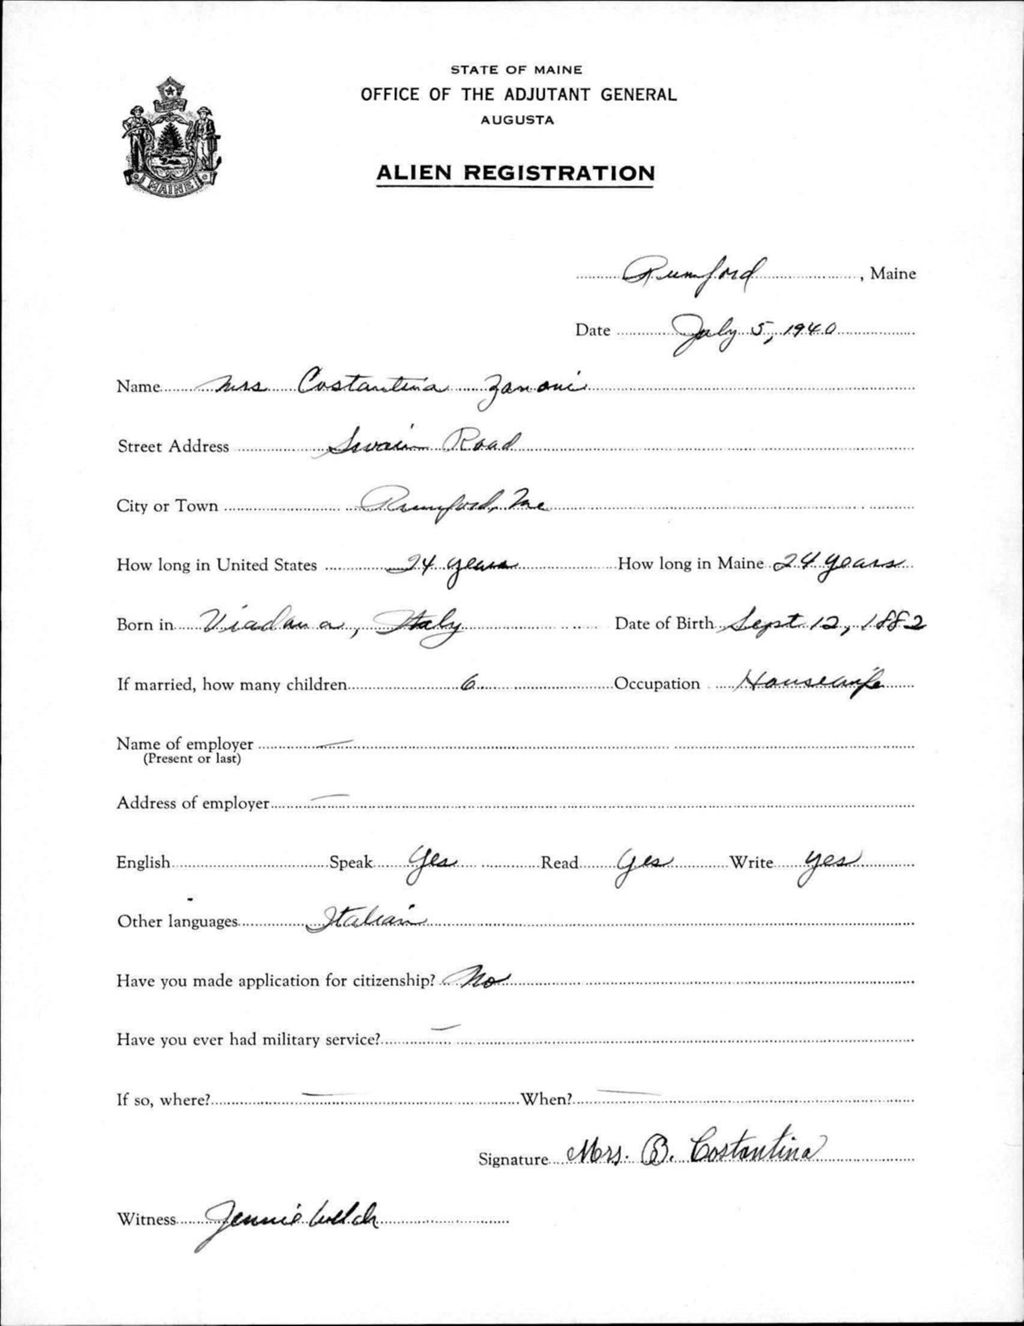 STATE OF MAINE
OFFICE OF THE ADJUTANT GENERAL
AUGUSTA
ALIEN REGISTRATION
MAINE
Rumford, Maine
Date July 5, 1940
Name Mrs Costantina Zanoni
Street Address Swain Road
City or Town Rumford, Me
How long in United States 24 years How long in Maine 24 years
Born in Viadana, Italy Date of Birth Sept 12, 1882
If married, how many children 6 Occupation Housewife
Name of employer —
(Present or last)
Address of employer —
English Speak Yes Read Yes Write yes
Other languages Italian
Have you made application for citizenship? No
Have you ever had military service? —
If so, where? — When? —
Signature Mrs. B. Costantina
Witness Jennie Welch